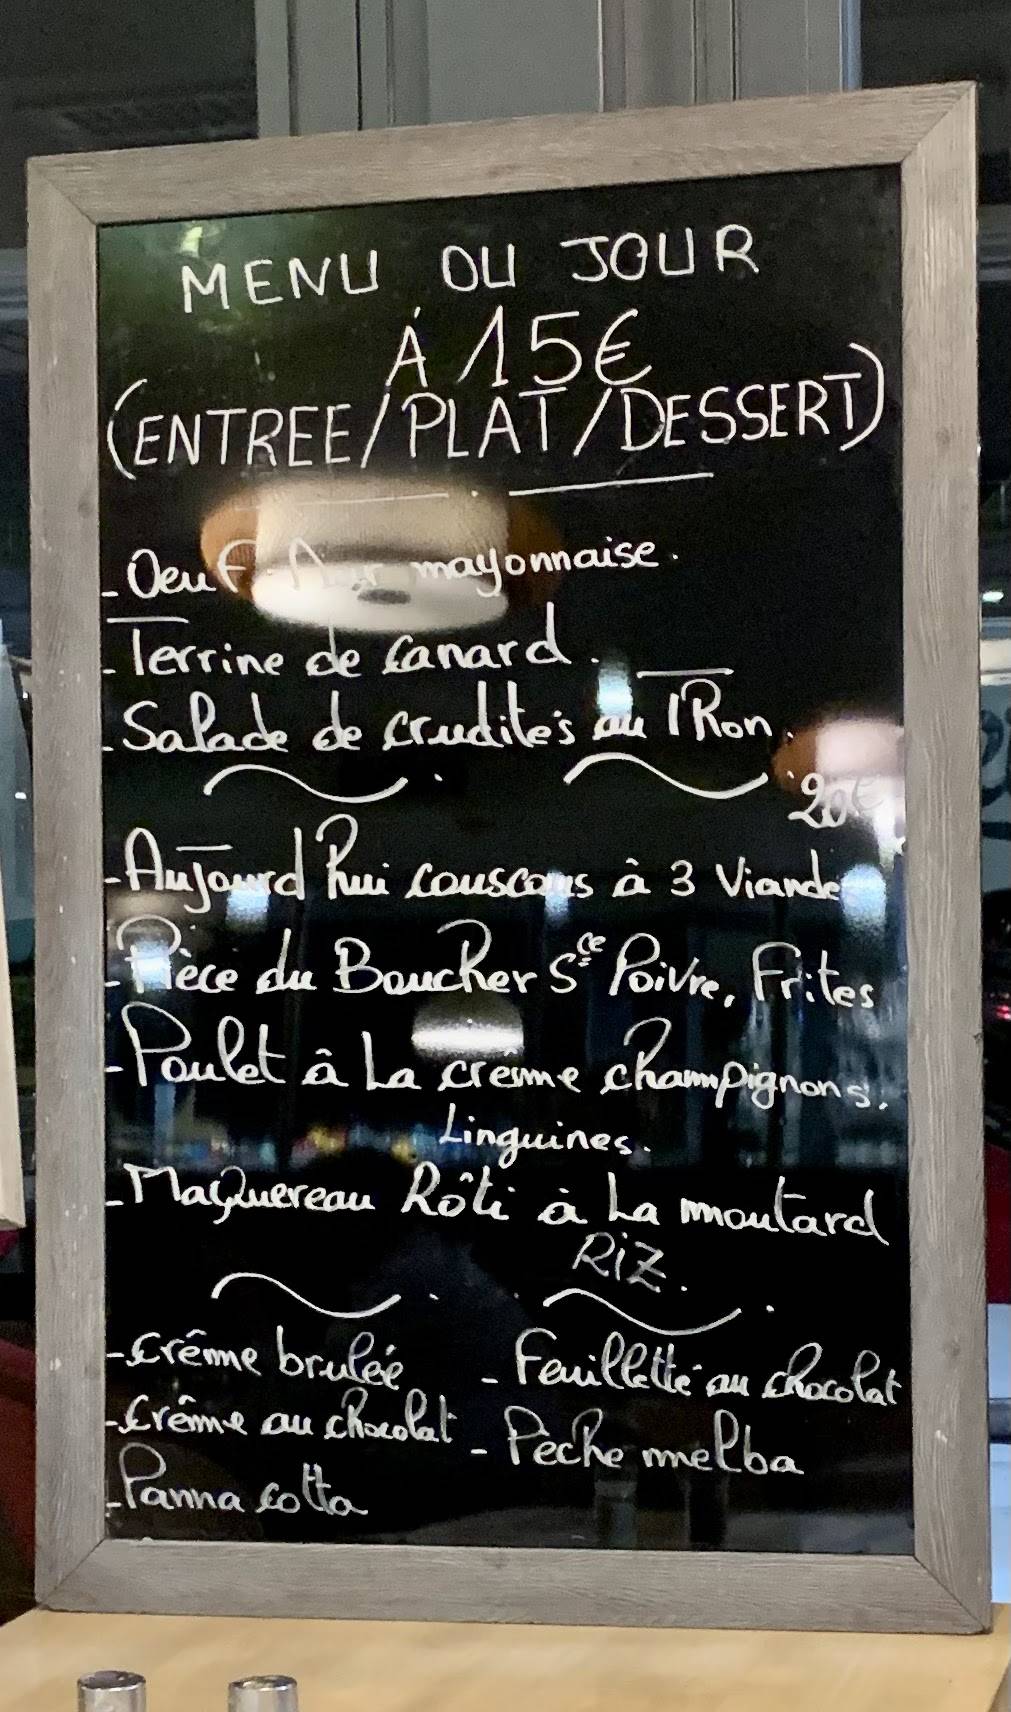 MENU DU JOUR
À 15€
(ENTREE/PLAT/DESSERT)
- Oeuf Dur mayonnaise.
- Terrine de canard.
- Salade de crudités au Thon.
20€
- Aujourd hui couscous à 3 Viande
- Pièce du Boucher Sce Poivre, Frites
- Poulet à La crème champignons.
Linguines.
- Maquereau Rôti à La moutard
Riz.
- Crême brulée
- Crême au chocolat
- Panna cotta
- Feuilletté au chocolat
- Pèche melba